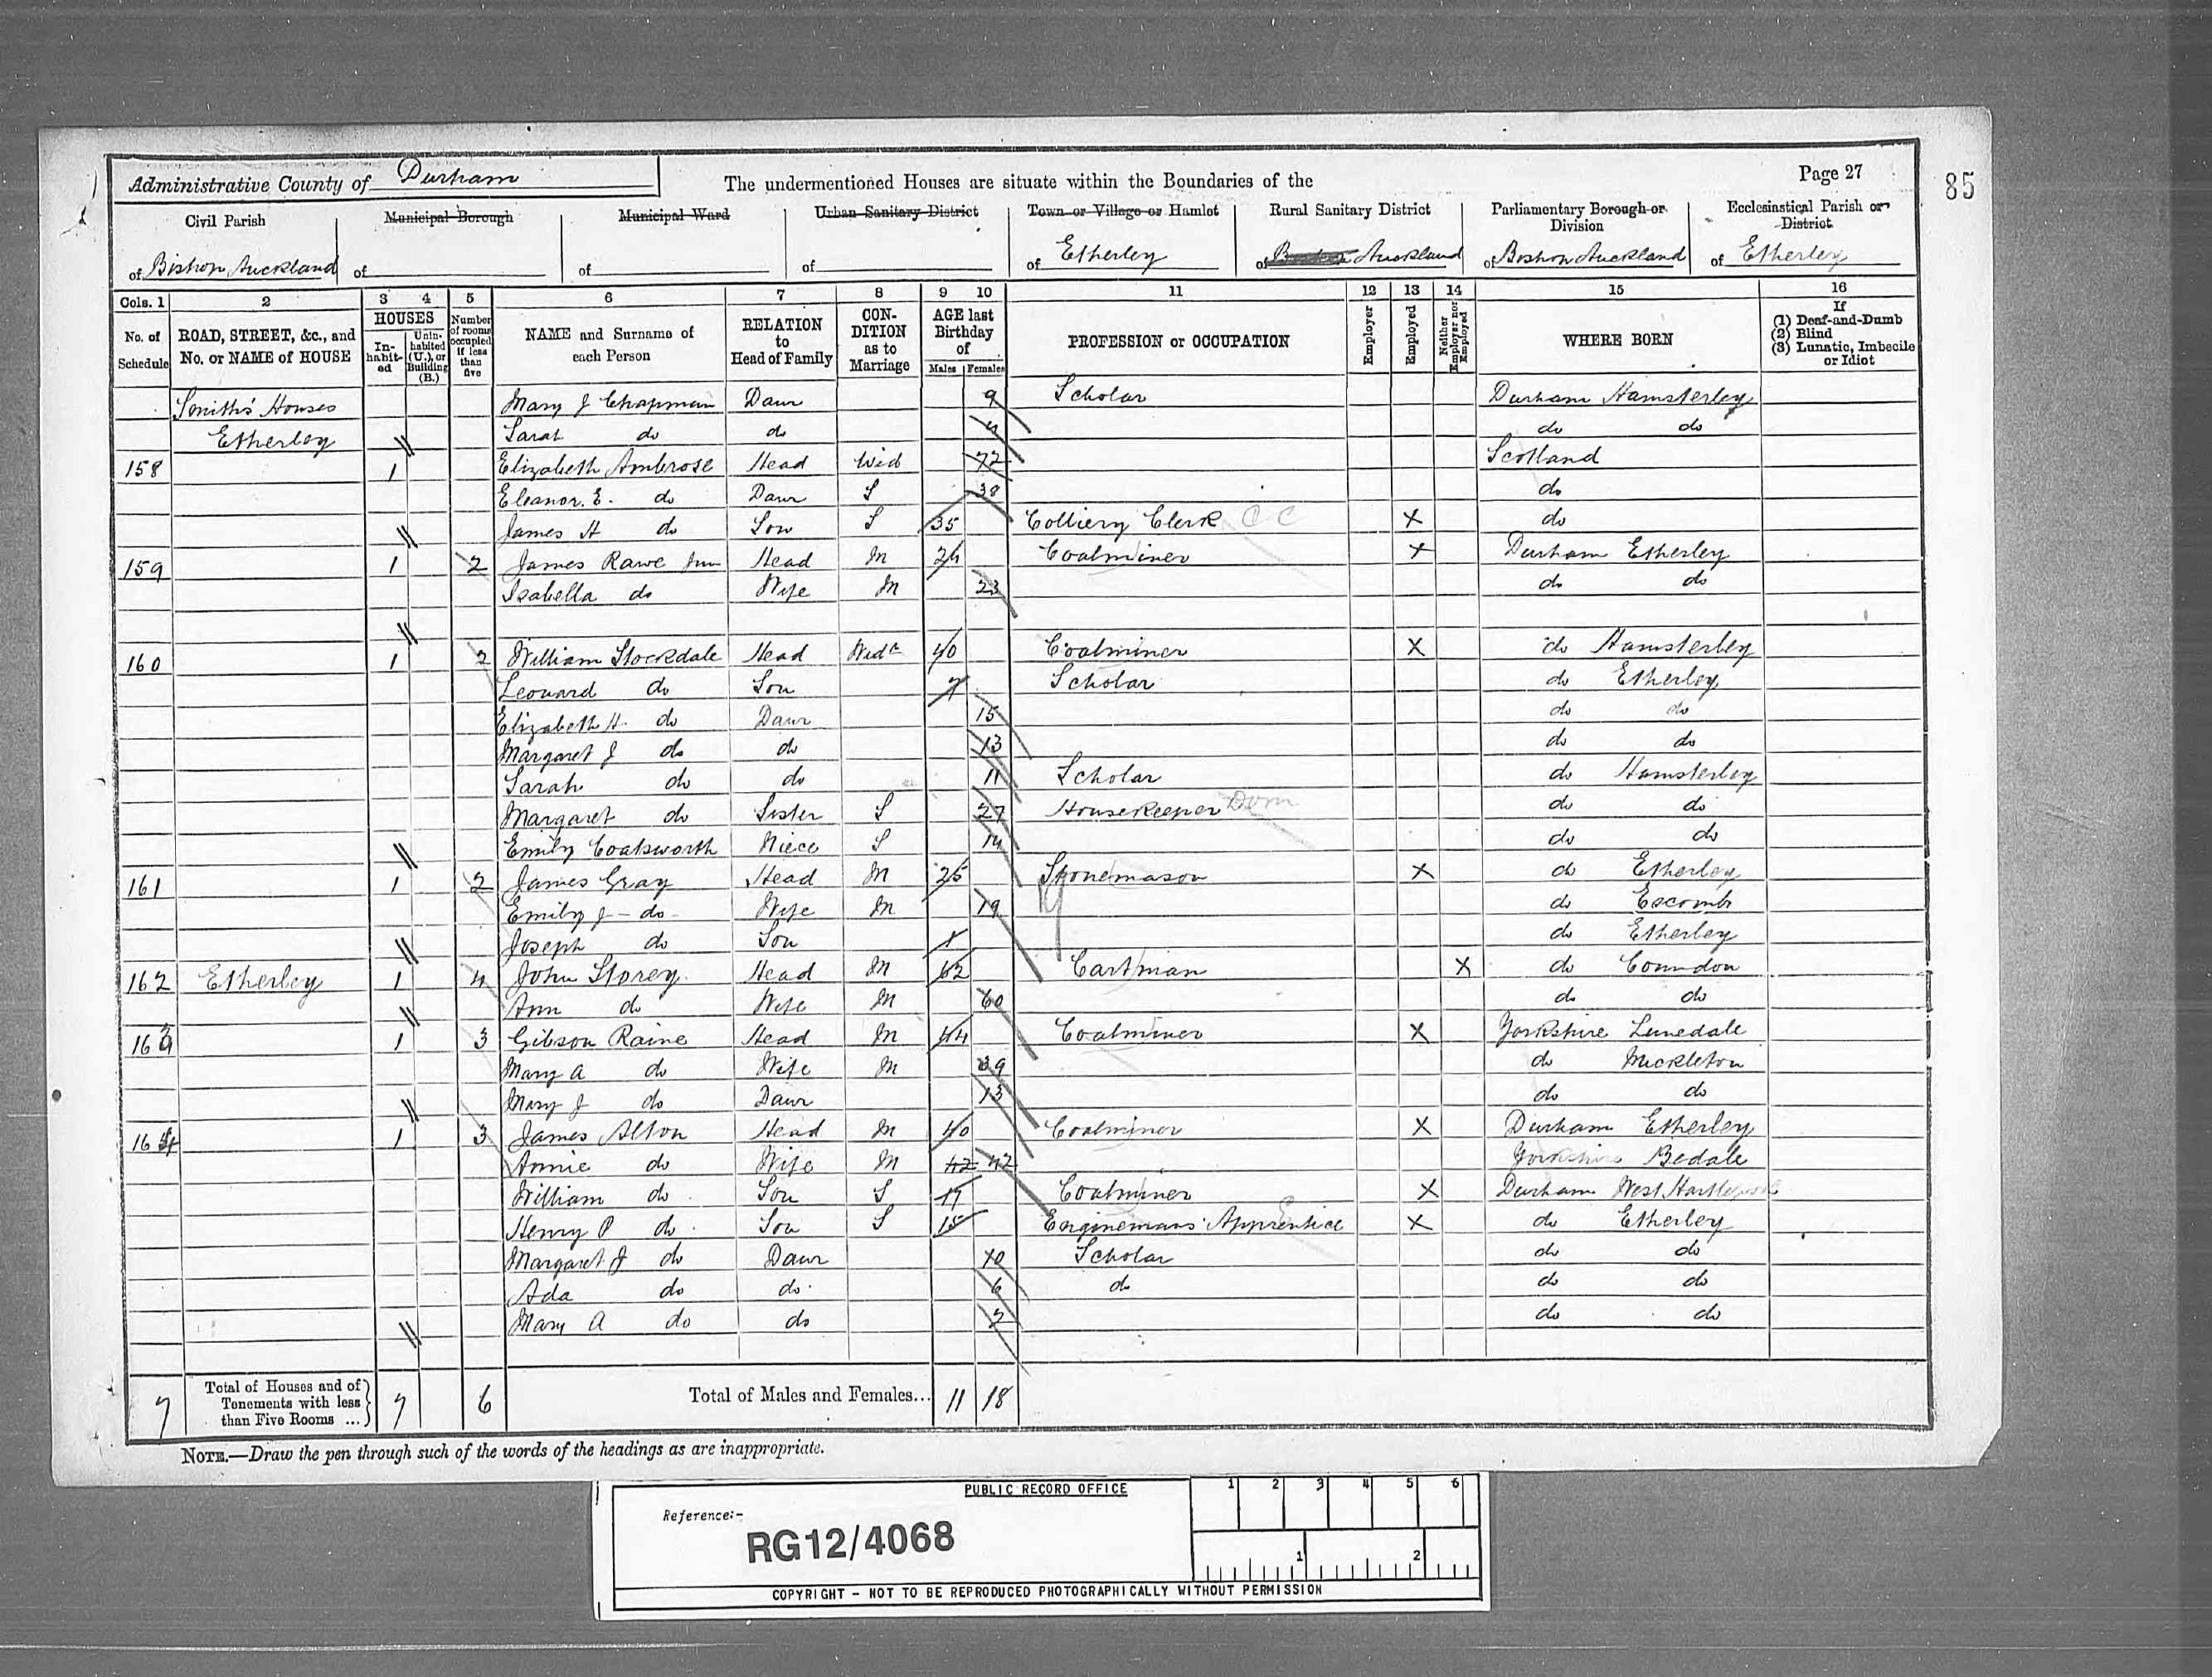 Administrative County of Durham
The undermentioned Houses are situate within the Boundaries of the
Page 27
85
Civil Parish
Municipal Borough
Municipal Ward
Urban Sanitary District
Town or Village or Hamlet
Rural Sanitary District
Parliamentary Borough or Division
Ecclesiastical Parish or District
of Bishop Auckland
of
of
of
of Etherley
of Auckland
of Bishop Auckland
of Etherley
Cols. 1 2 3 4 5 6 7 8 9 10 11 12 13 14 15 16
No. of Schedule
ROAD, STREET, &c., and No. or NAME of HOUSE
HOUSES
In-habit-ed
Unin-habited (U.), or Building (B.)
Number of rooms occupied if less than five
NAME and Surname of each Person
RELATION to Head of Family
CON-DITION as to Marriage
AGE last Birthday of
Males Females
PROFESSION or OCCUPATION
Employer
Employed
Neither Employer nor Employed
WHERE BORN
If
(1) Deaf-and-Dumb
(2) Blind
(3) Lunatic, Imbecile or Idiot
Smith's Houses Mary J Chapman Daur 9 Scholar Durham Hamsterley
Etherley Sarah do do 4 do do
158 1 Elizabeth Ambrose Head Wid 72 Scotland
Eleanor. E. do Daur S 38 do
James H do Son S 35 Colliery Clerk C C X do
159 1 2 James Rawe Jun Head M 24 Coalminer X Durham Etherley
Isabella do Wife M 23 do do
160 1 2 William Stockdale Head Widr 40 Coalminer X do Hamsterley
Leonard do Son 7 Scholar do Etherley
Elizabeth H. do Daur 15 do do
Margaret J do do 13 do do
Sarah do do 11 Scholar do Hamsterley
Margaret do Sister S 27 Housekeeper Dom do do
Emily Coatsworth Niece S 14 do do
161 1 2 James Gray Head M 25 Stonemason X do Etherley
Emily J do Wife M 19 do Escomb
Joseph do Son 1 do Etherley
162 Etherley 1 4 John Storey Head M 62 Cartman X do Coundon
Ann do Wife M 60 do do
163 1 3 Gibson Raine Head M 44 Coalminer X Yorkshire Lunedale
Mary A do Wife M 39 do Mickleton
Mary J do Daur 13 do do
164 1 3 James Alton Head M 40 Coalminer X Durham Etherley
Annie do Wife M 42 42 Yorkshire Bedale
William do Son S 17 Coalminer X Durham West Hartlepool
Henry P do Son S 15 Enginemans Apprentice X do Etherley
Margaret J do Daur 10 Scholar do do
Ada do do 6 do do do
Mary A do do 2 do do
7 Total of Houses and of Tenements with less than Five Rooms ... 7 6 Total of Males and Females... 11 18
NOTE.—Draw the pen through such of the words of the headings as are inappropriate.
PUBLIC RECORD OFFICE
1 2 3 4 5 6
Reference:-
RG12/4068
1 2
COPYRIGHT - NOT TO BE REPRODUCED PHOTOGRAPHICALLY WITHOUT PERMISSION